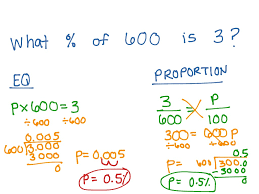 What % of 600 is 3?
EQ
P×600=3
÷600 ÷600
0.005
600 3.000
3000
0
P=0.005
P=0.5%
PROPORTION
3/600 = P/100
300=600P
÷600 ÷600
P=
0.5
600 300.0
-3000
0
P=0.5%